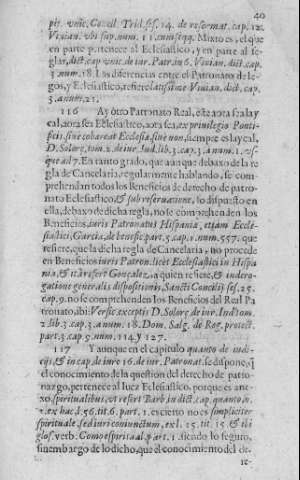 40
pis. vnic. Concil. Trid. ses. 14. de reformat. cap. 12.
Vivian. vbi sup. num. 11. cum seqq. Mixto es, el que
en parte pertenece al Eclesiastico, y en parte al se-
glar, dict. cap. vnic. de iur. Patr. in 6. Vivian. dict. cap.
3. num. 18. Las diferencias entre el Patronato de le-
gos, y Eclesiastico, refiere latissime Vivian. dict. cap.
3. à num. 21.
116 Ay otro Patronato Real, este aora sea lay
cal, aora sea Eclesiastico, aora sea, ex privilegio Ponti-
ficis, sive cohareat Ecclesia, sive non, siempre es laycal,
D. Solorç. tom. 2. de iur. Ind. lib. 3. cap. 3. à num. 1. vs-
que ad 7. En tanto grado, que aunque debaxo de la re
gla de Cancelaria, regularmente hablando, se com-
prehendan todos los Beneficios de derecho de patro
nato Eclesiastico, & sub reservatione, lo dispuesto en
ella, debaxo de dicha regla, no se comprehenden los
Beneficios, iuris Patronatus Hispania, etiam Eccle-
siastici, Garcia, de benefic. part. 5. cap. 1. num. 557. que
refiere, que la dicha regla de Cancelaria, no procede
en Beneficios iuris Patron. licèt Ecclesiastici in Hispa
nia, & ita refert Gonçalez, a quien refiere, & in dero-
gatione generalis dispositionis, Sancti Concilij ses. 25.
cap. 9. no se comprehenden los Beneficios del Real Pa
tronato, ibi: Versic. exceptis D. Solorç. de iur. Ind. tom.
2. lib. 3. cap. 3. à num. 18. Dom. Salg. de Reg. protect.
part. 3. cap. 9. num. 114. y 127.
117 Y aunque en el capitulo quanto de iudi-
cijs, & in cap. de iure 16. de iur. Patronat. se dispone, q̃
el conocimiento de la question del derecho de patro-
nazgo, pertenece al luez Eclesiastico, porque es ane-
xo, spiritualibus, vt refert Barb. in dict. cap. quanto, n.
2. ex hac l. 56. tit. 6. part. 1. es cierto no es simpliciter
spirituale, sed iuri coniunctum, ex l. 15. tit. 15. & ibi
glos. verb. Como espiritual, part. 1. siendo lo seguro,
sin embargo de lo dicho, que el conocimiento del de-
re-